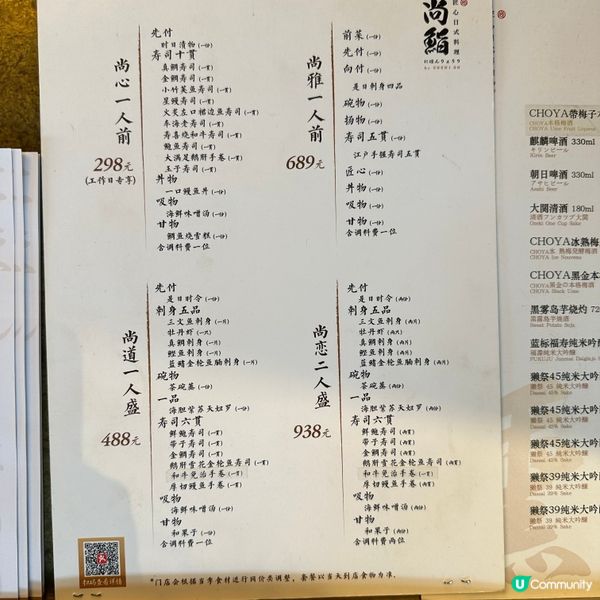 尚鮨
匠心日式料理
尚心一人前
298元
(工作日专享)
先付
时日渍物(一份)
寿司十贯
真鲷寿司(一贯)
金鲷寿司(一贯)
小竹荚鱼寿司(一贯)
星鳗寿司(一贯)
火炙左口裙边鱼寿司(一贯)
车海老寿司(一贯)
寿喜烧和牛寿司(一贯)
鲍鱼寿司(一贯)
大满足鹅肝手卷(一贯)
玉子寿司(一贯)
丼物
一口鳗鱼丼(一份)
吸物
海鲜味噌汤(一份)
甘物
鲷鱼烧雪糕(一份)
含调料费一位
尚雅一人前
689元
前菜(一份)
先付(一份)
向付(一份)
是日刺身四品
碗物(一份)
扬物(一份)
寿司五贯(一份)
江户手握寿司五贯
匠心(一份)
丼物(一份)
吸物(一份)
甘物(一份)
含调料费一位
尚道一人盛
488元
先付
是日时令(一份)
刺身五品
三文鱼刺身(一片)
牡丹虾(一只)
真鲷刺身(一片)
鲣鱼刺身(一片)
蓝鳍金枪鱼腩刺身(一片)
碗物
茶碗蒸(一份)
一品
海胆紫苏天妇罗(一份)
寿司六贯
鲜鲍寿司(一贯)
带子寿司(一贯)
金鲷寿司(一贯)
鹅肝雪花金枪鱼寿司(一贯)
和牛免治手卷(一贯)
厚切鳗鱼手卷(一贯)
吸物
海鲜味噌汤(一份)
甘物
和菓子(一份)
含调料费一位
尚恋二人盛
938元
先付
是日时令(两份)
刺身五品
三文鱼刺身(两片)
牡丹虾(两只)
真鲷刺身(两片)
鲣鱼刺身(两片)
蓝鳍金枪鱼腩刺身(两片)
碗物
茶碗蒸(两份)
一品
海胆紫苏天妇罗(两份)
寿司六贯
鲜鲍寿司(两贯)
带子寿司(两贯)
金鲷寿司(两贯)
鹅肝雪花金枪鱼寿司(两贯)
和牛免治手卷(两贯)
厚切鳗鱼手卷(两贯)
吸物
海鲜味噌汤(两份)
甘物
和菓子(两份)
含调料费两位
扫码查看详情
*门店会根据当季食材进行同价类调整，套餐以当天到店食物为准。
CHOYA带梅子
CHOYA本格梅酒
麒麟啤酒 330ml
キリンビール
Kirin Beer
朝日啤酒 330ml
アサヒビール
Asahi Beer
大関清酒 180ml
清酒ワンカップ大関
Ozeki One Cup Sake
CHOYA冰熟梅
CHOYA Ice Nouveau
CHOYA黑金本
CHOYA黒金の本格梅酒
黑雾岛芋烧灼 72
黒霧島芋焼酒
Sweet Potato Soju
蓝标福寿纯米吟
福壽純米吟醸
獭祭45纯米大吟
獺祭 45 純米大吟醸
Dassai 45% Sake
獭祭45纯米大吟
獺祭 45 純米大吟醸
Dassai 45% Sake
獭祭45纯米大吟
獺祭 45 純米大吟醸
Dassai 45% Sake
獭祭39纯米大吟
獺祭 39 純米大吟醸
Dassai 39% Sake
獭祭39纯米大吟
獺祭 39 純米大吟醸
U Community